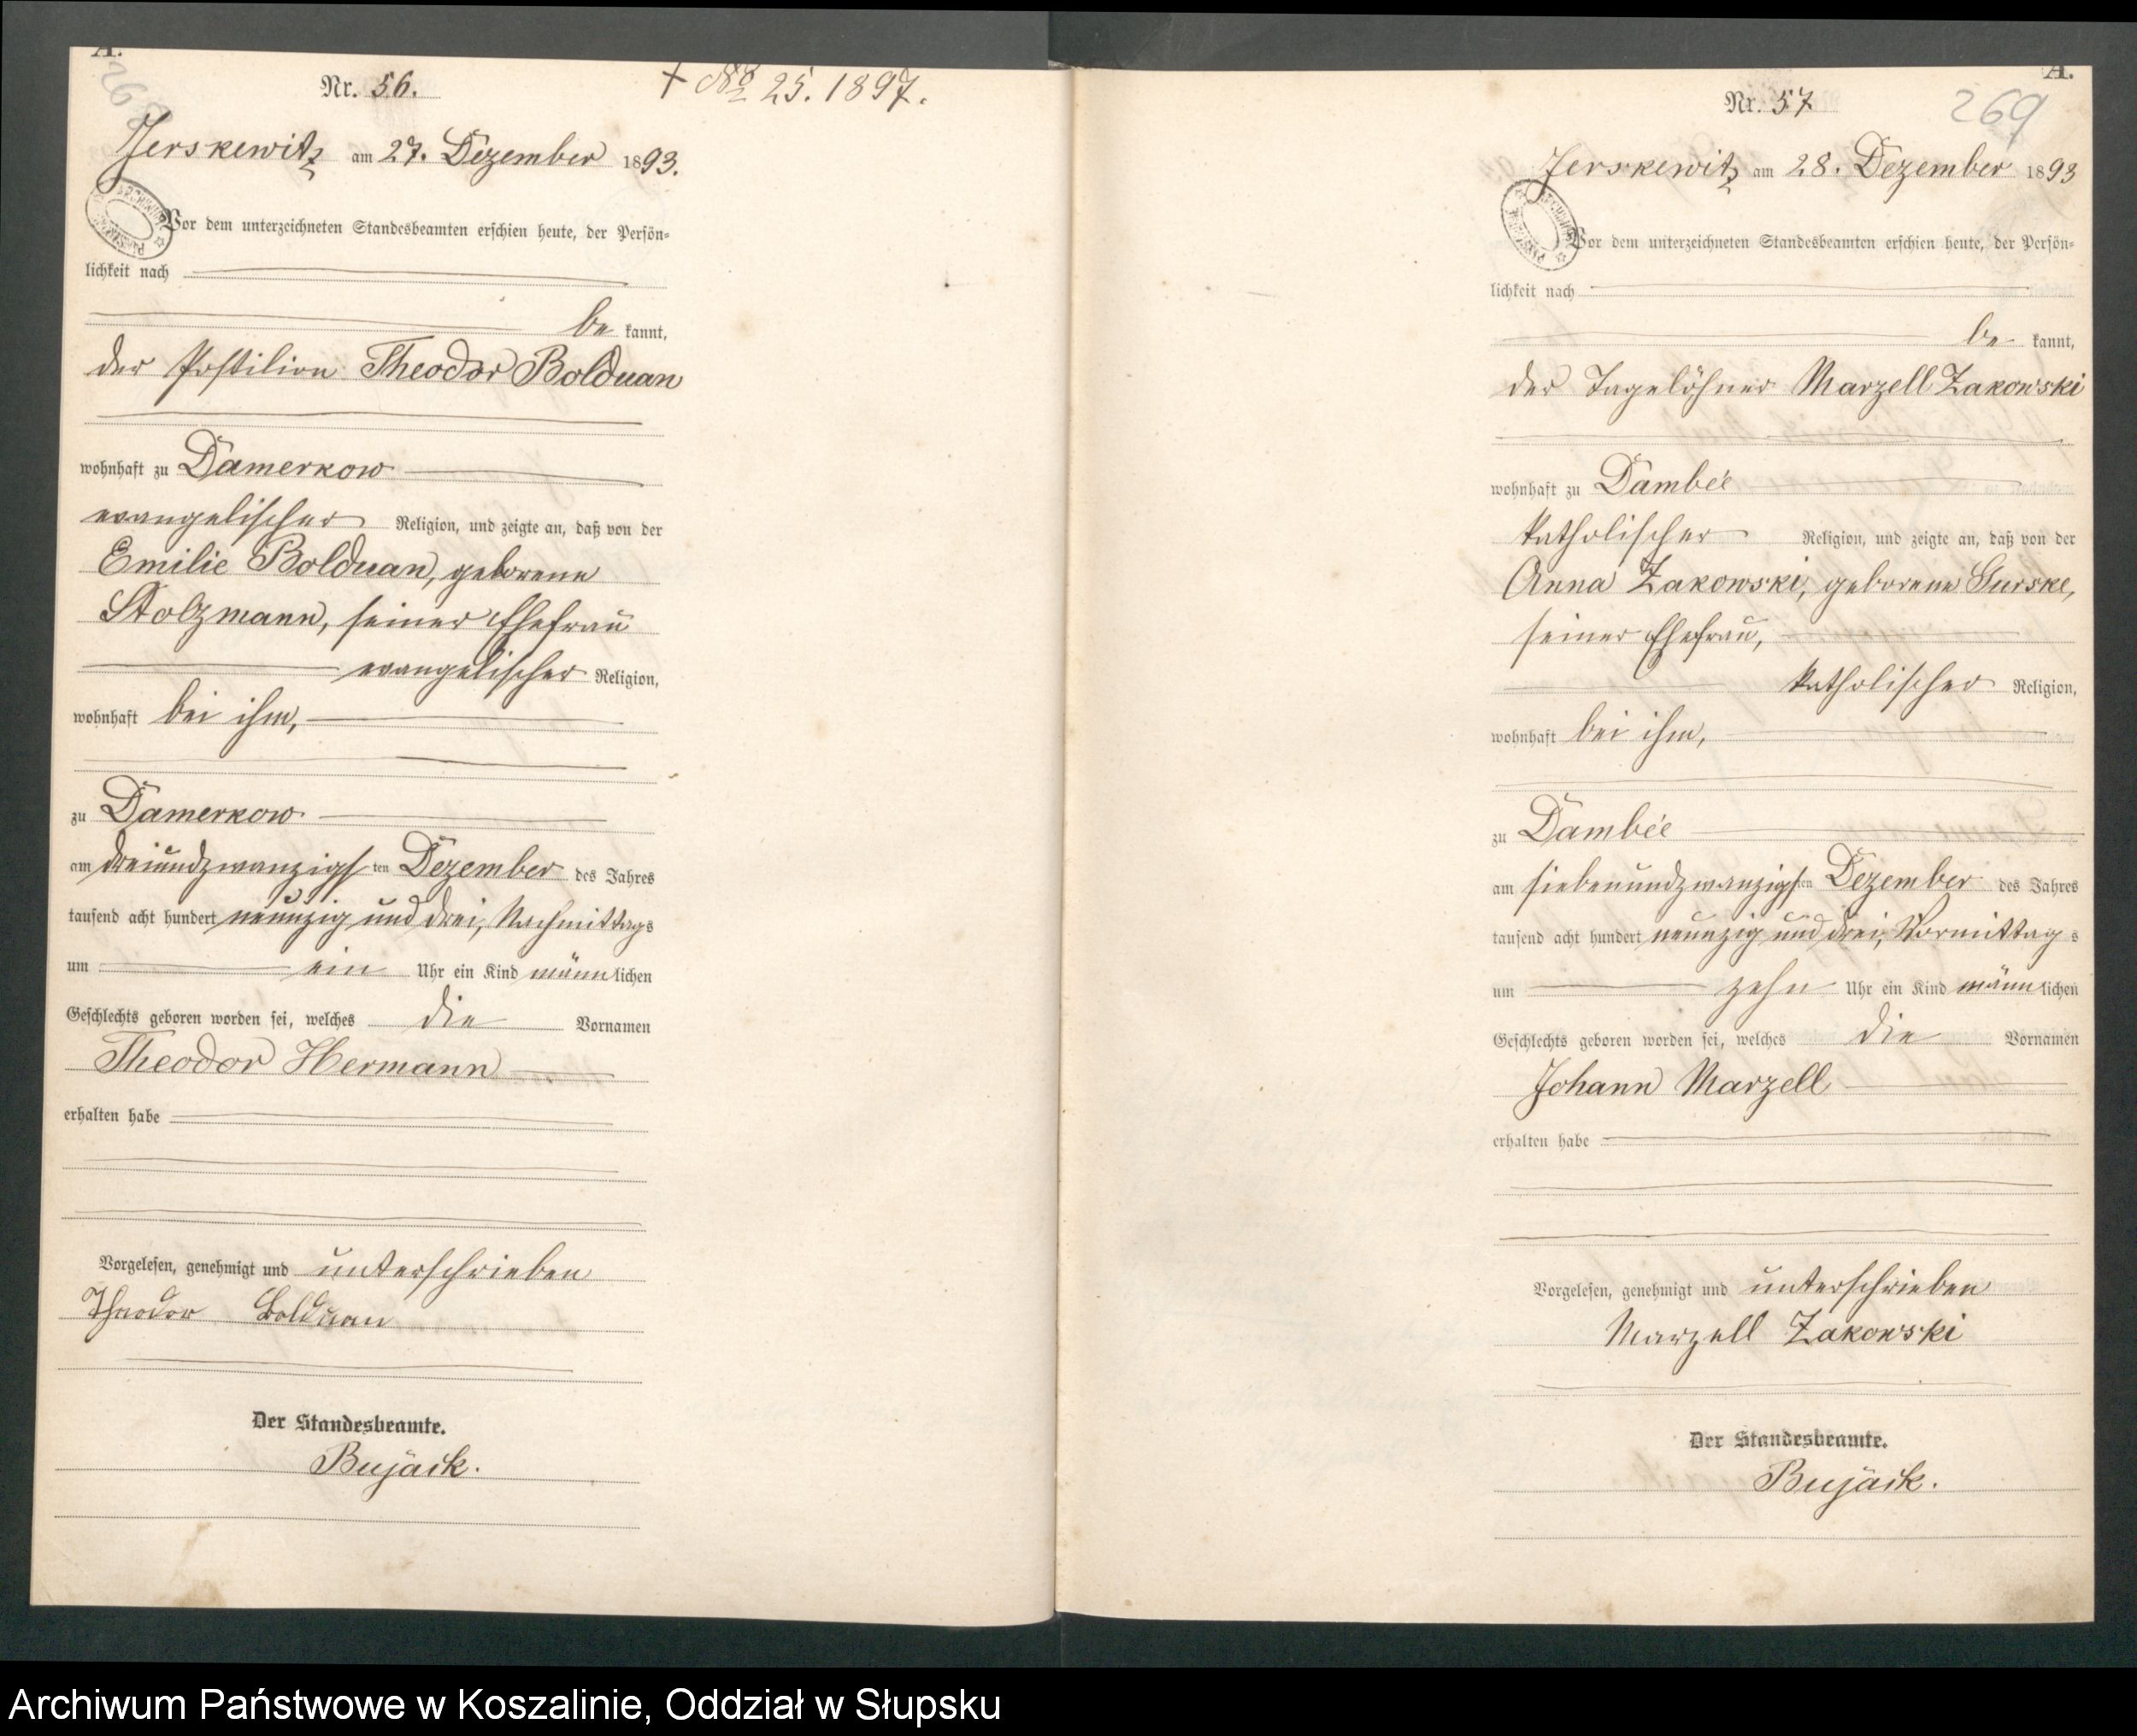 A.
Nr. 56.
+ № 25. 1897.
Jerskewitz am 27. Dezember 1893.
Vor dem unterzeichneten Standesbeamten erschien heute, der Persön-
lichkeit nach
be kannt,
der Postilion Theodor Bolduan
wohnhaft zu Damerkow
evangelischer Religion, und zeigte an, daß von der
Emilie Bolduan, geborene
Stolzmann, seiner Ehefrau
evangelischer Religion,
wohnhaft bei ihm,
zu Damerkow
am dreiundzwanzigsten Dezember des Jahres
tausend acht hundert neunzig und drei, Nachmittags
um ein Uhr ein Kind männlichen
Geschlechts geboren worden sei, welches die Vornamen
Theodor Hermann
erhalten habe
Vorgelesen, genehmigt und unterschrieben
Theodor Bolduan
Der Standesbeamte.
Bujack.
A.
Nr. 57
269
Jerskewitz am 28. Dezember 1893
Vor dem unterzeichneten Standesbeamten erschien heute, der Persön-
lichkeit nach
be kannt,
der Tagelöhner Marzell Zakowski
wohnhaft zu Dambee
katholischer Religion, und zeigte an, daß von der
Anna Zakowski, geborene Gurske,
seiner Ehefrau,
katholischer Religion,
wohnhaft bei ihm,
zu Dambee
am siebenundzwanzigsten Dezember des Jahres
tausend acht hundert neunzig und drei, Vormittags
um zehn Uhr ein Kind männlichen
Geschlechts geboren worden sei, welches die Vornamen
Johann Marzell
erhalten habe
Vorgelesen, genehmigt und unterschrieben
Marzell Zakowski
Der Standesbeamte.
Bujack.
Archiwum Państwowe w Koszalinie, Oddział w Słupsku